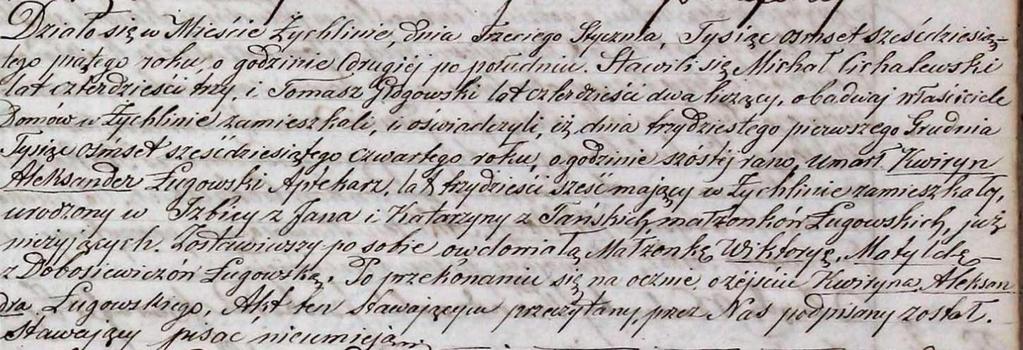 Działo się w Mieście Żychlinie, dnia Trzeciego Stycznia, Tysiąc ośmset sześćdziesią-
tego piątego roku, o godzinie drugiej po południu. Stawili się Michał Cichalewski
lat czterdzieści trzy, i Tomasz Głogowski lat czterdzieści dwa liczący, obadwaj właściciele
Domów w Żychlinie zamieszkali, i oświadczyli, iż dnia trzydziestego pierwszego Grudnia
Tysiąc ośmset sześćdziesiątego czwartego roku, o godzinie szóstej rano, umarł Kwiryn
Aleksander Ługowski Aptekarz, lat trzydzieści sześć mający w Żychlinie zamieszkały,
urodzony w Izbicy z Jana i Katarzyny z Tańskich, małżonków Ługowskich, już
nieżyjących. Zostawiwszy po sobie owdowiałą Małżonkę Wiktoryę, Matyldę
z Dobosiewiczów Ługowską. Po przekonaniu się na ocznie o zejściu Kwiryna Aleksan
dra Ługowskiego, Akt ten stawającym przeczytany, przez Nas podpisany został.
Stawający pisać nieumieją